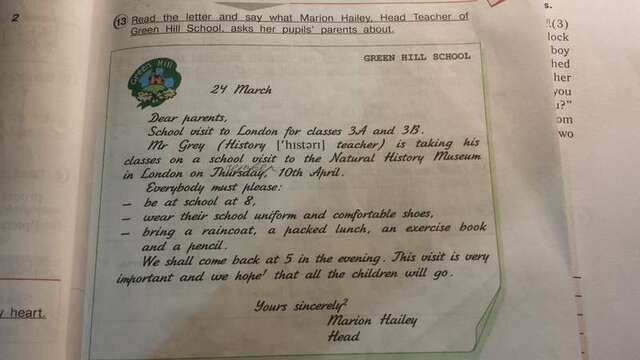 2
(13) Read the letter and say what Marion Hailey, Head Teacher of
Green Hill School, asks her pupils' parents about.
GREEN HILL SCHOOL
GREEN HILL
24 March
Dear parents,
School visit to London for classes 3A and 3B.
Mr Grey (History ['hɪstərɪ] teacher) is taking his
classes on a school visit to the Natural History Museum
in London on Thursday, 10th April.
Everybody must please:
— be at school at 8,
— wear their school uniform and comfortable shoes,
— bring a raincoat, a packed lunch, an exercise book
and a pencil.
We shall come back at 5 in the evening. This visit is very
important and we hope¹ that all the children will go.
Yours sincerely²
Marion Hailey
Head
heart.
s.
(3)
lock
boy
hed
her
you
om
wo